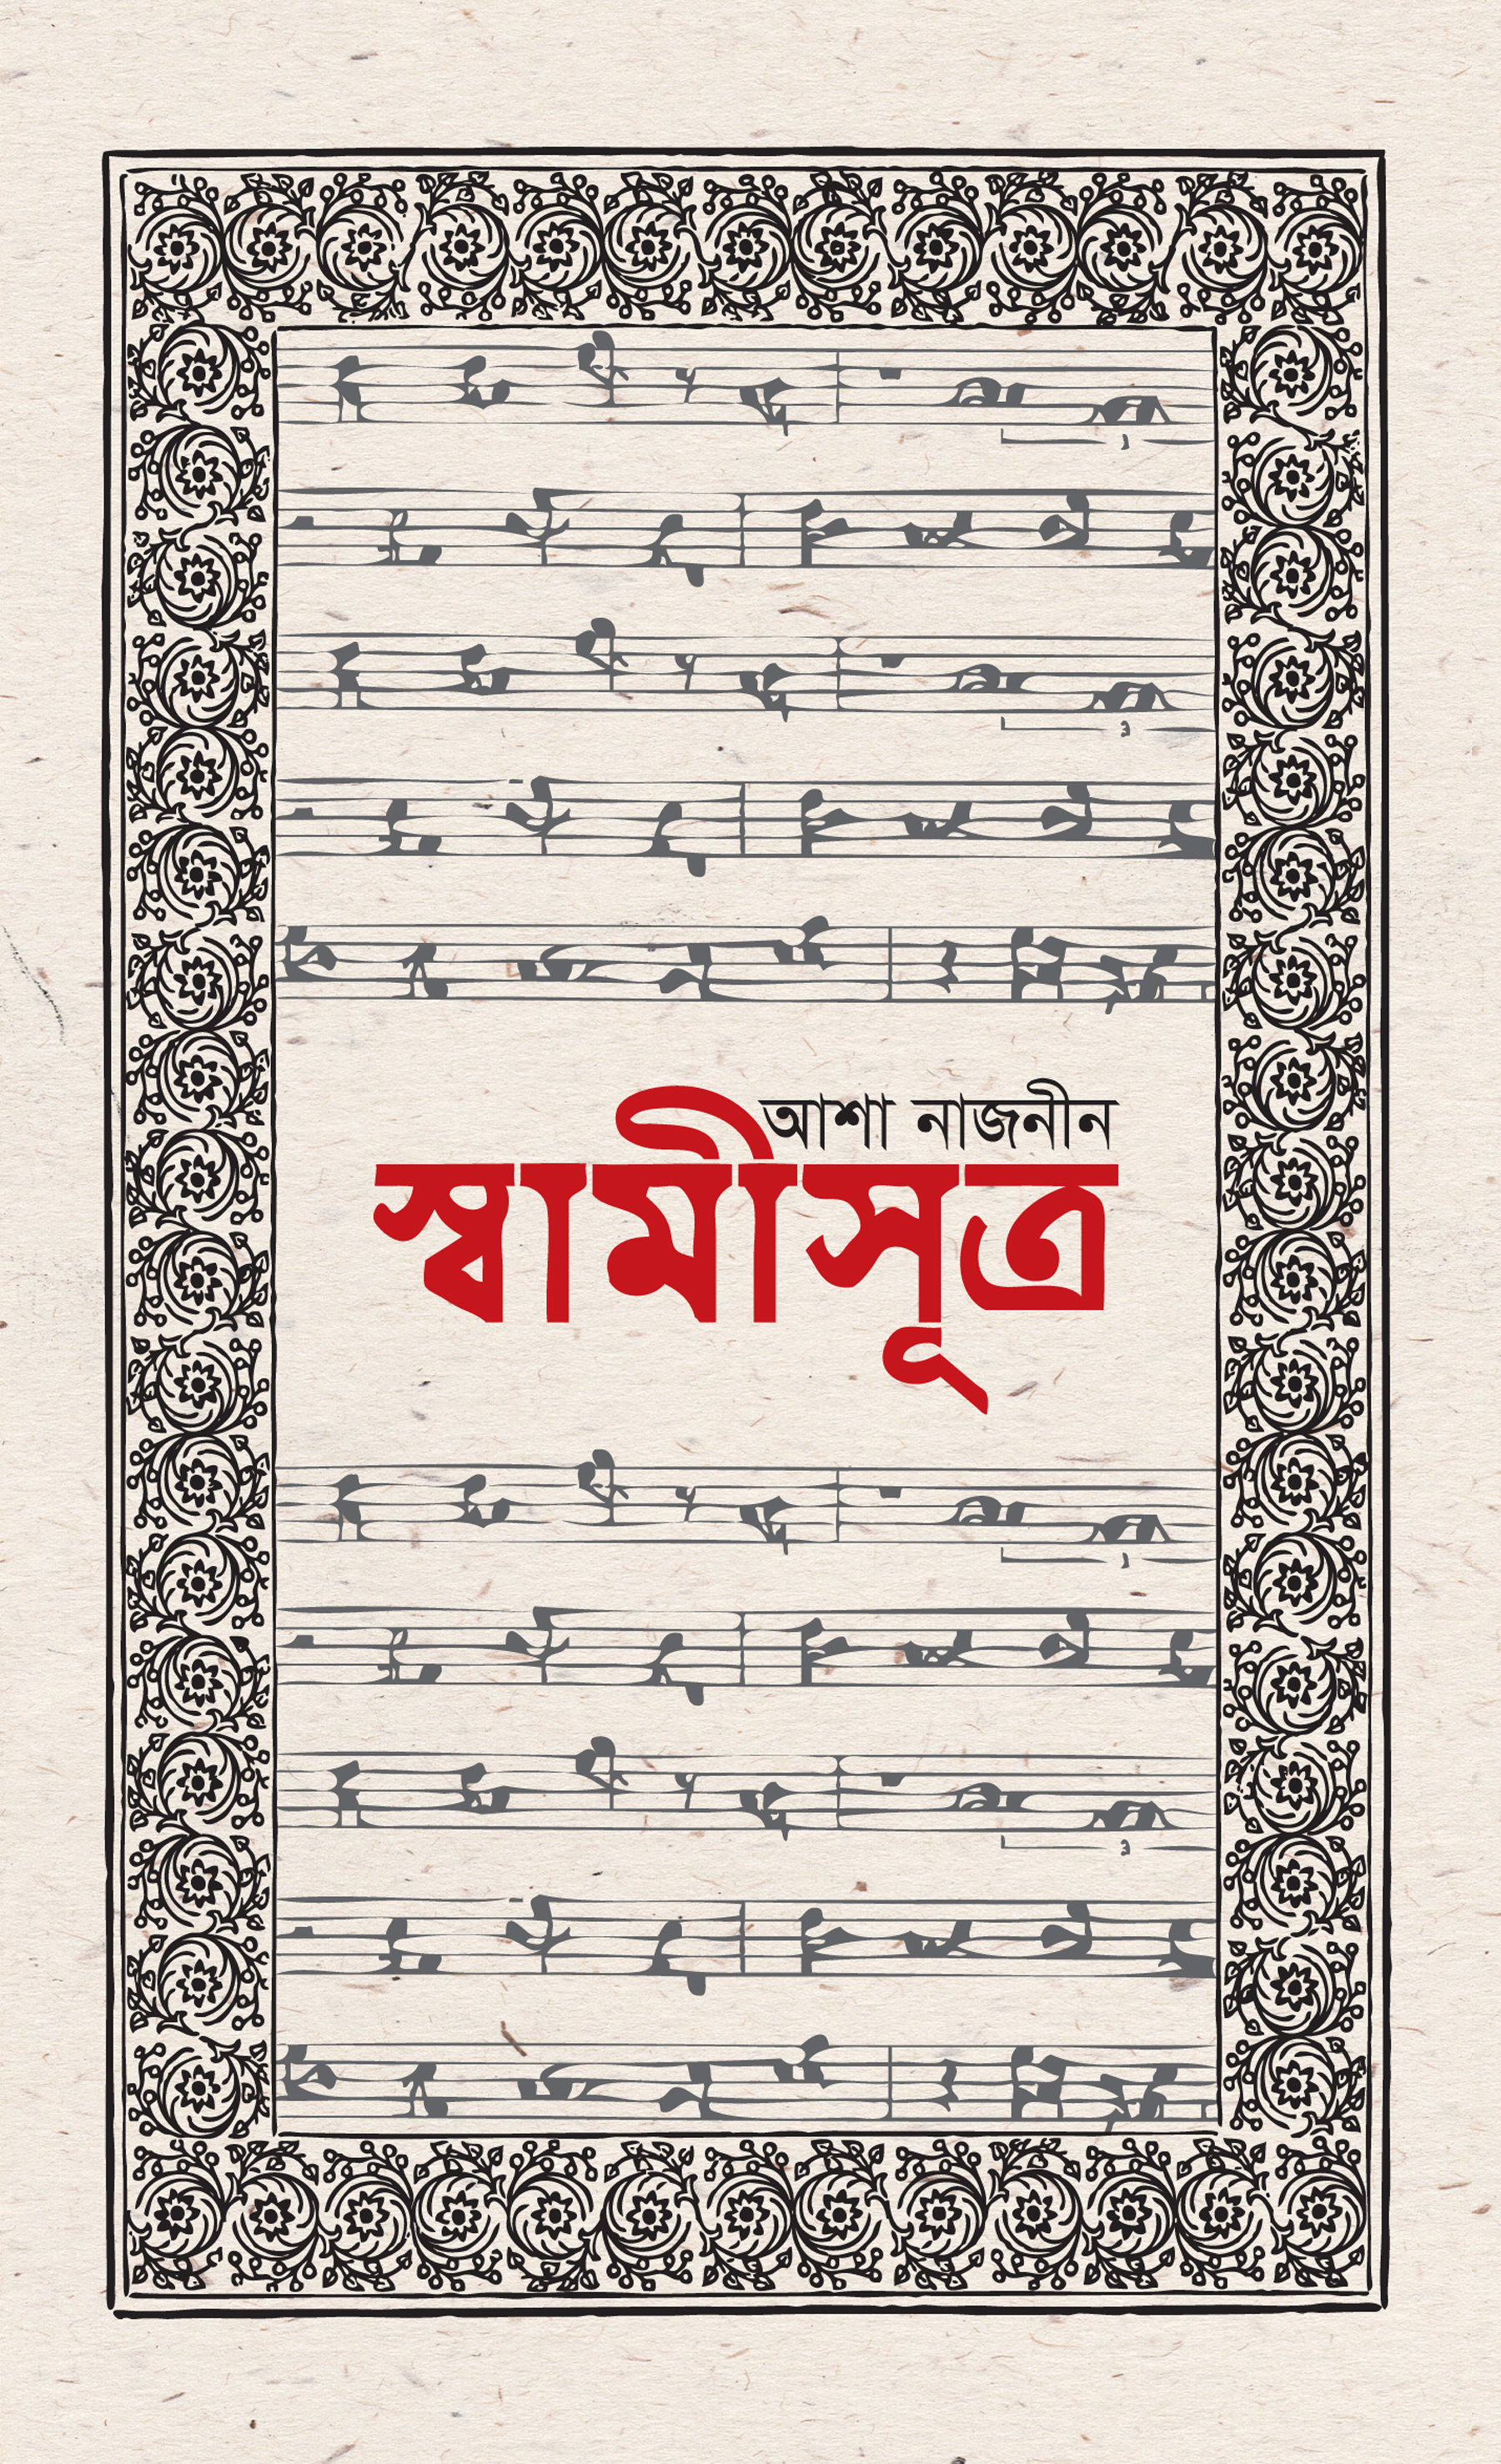 আশা নাজনীন
স্বামীসূত্র